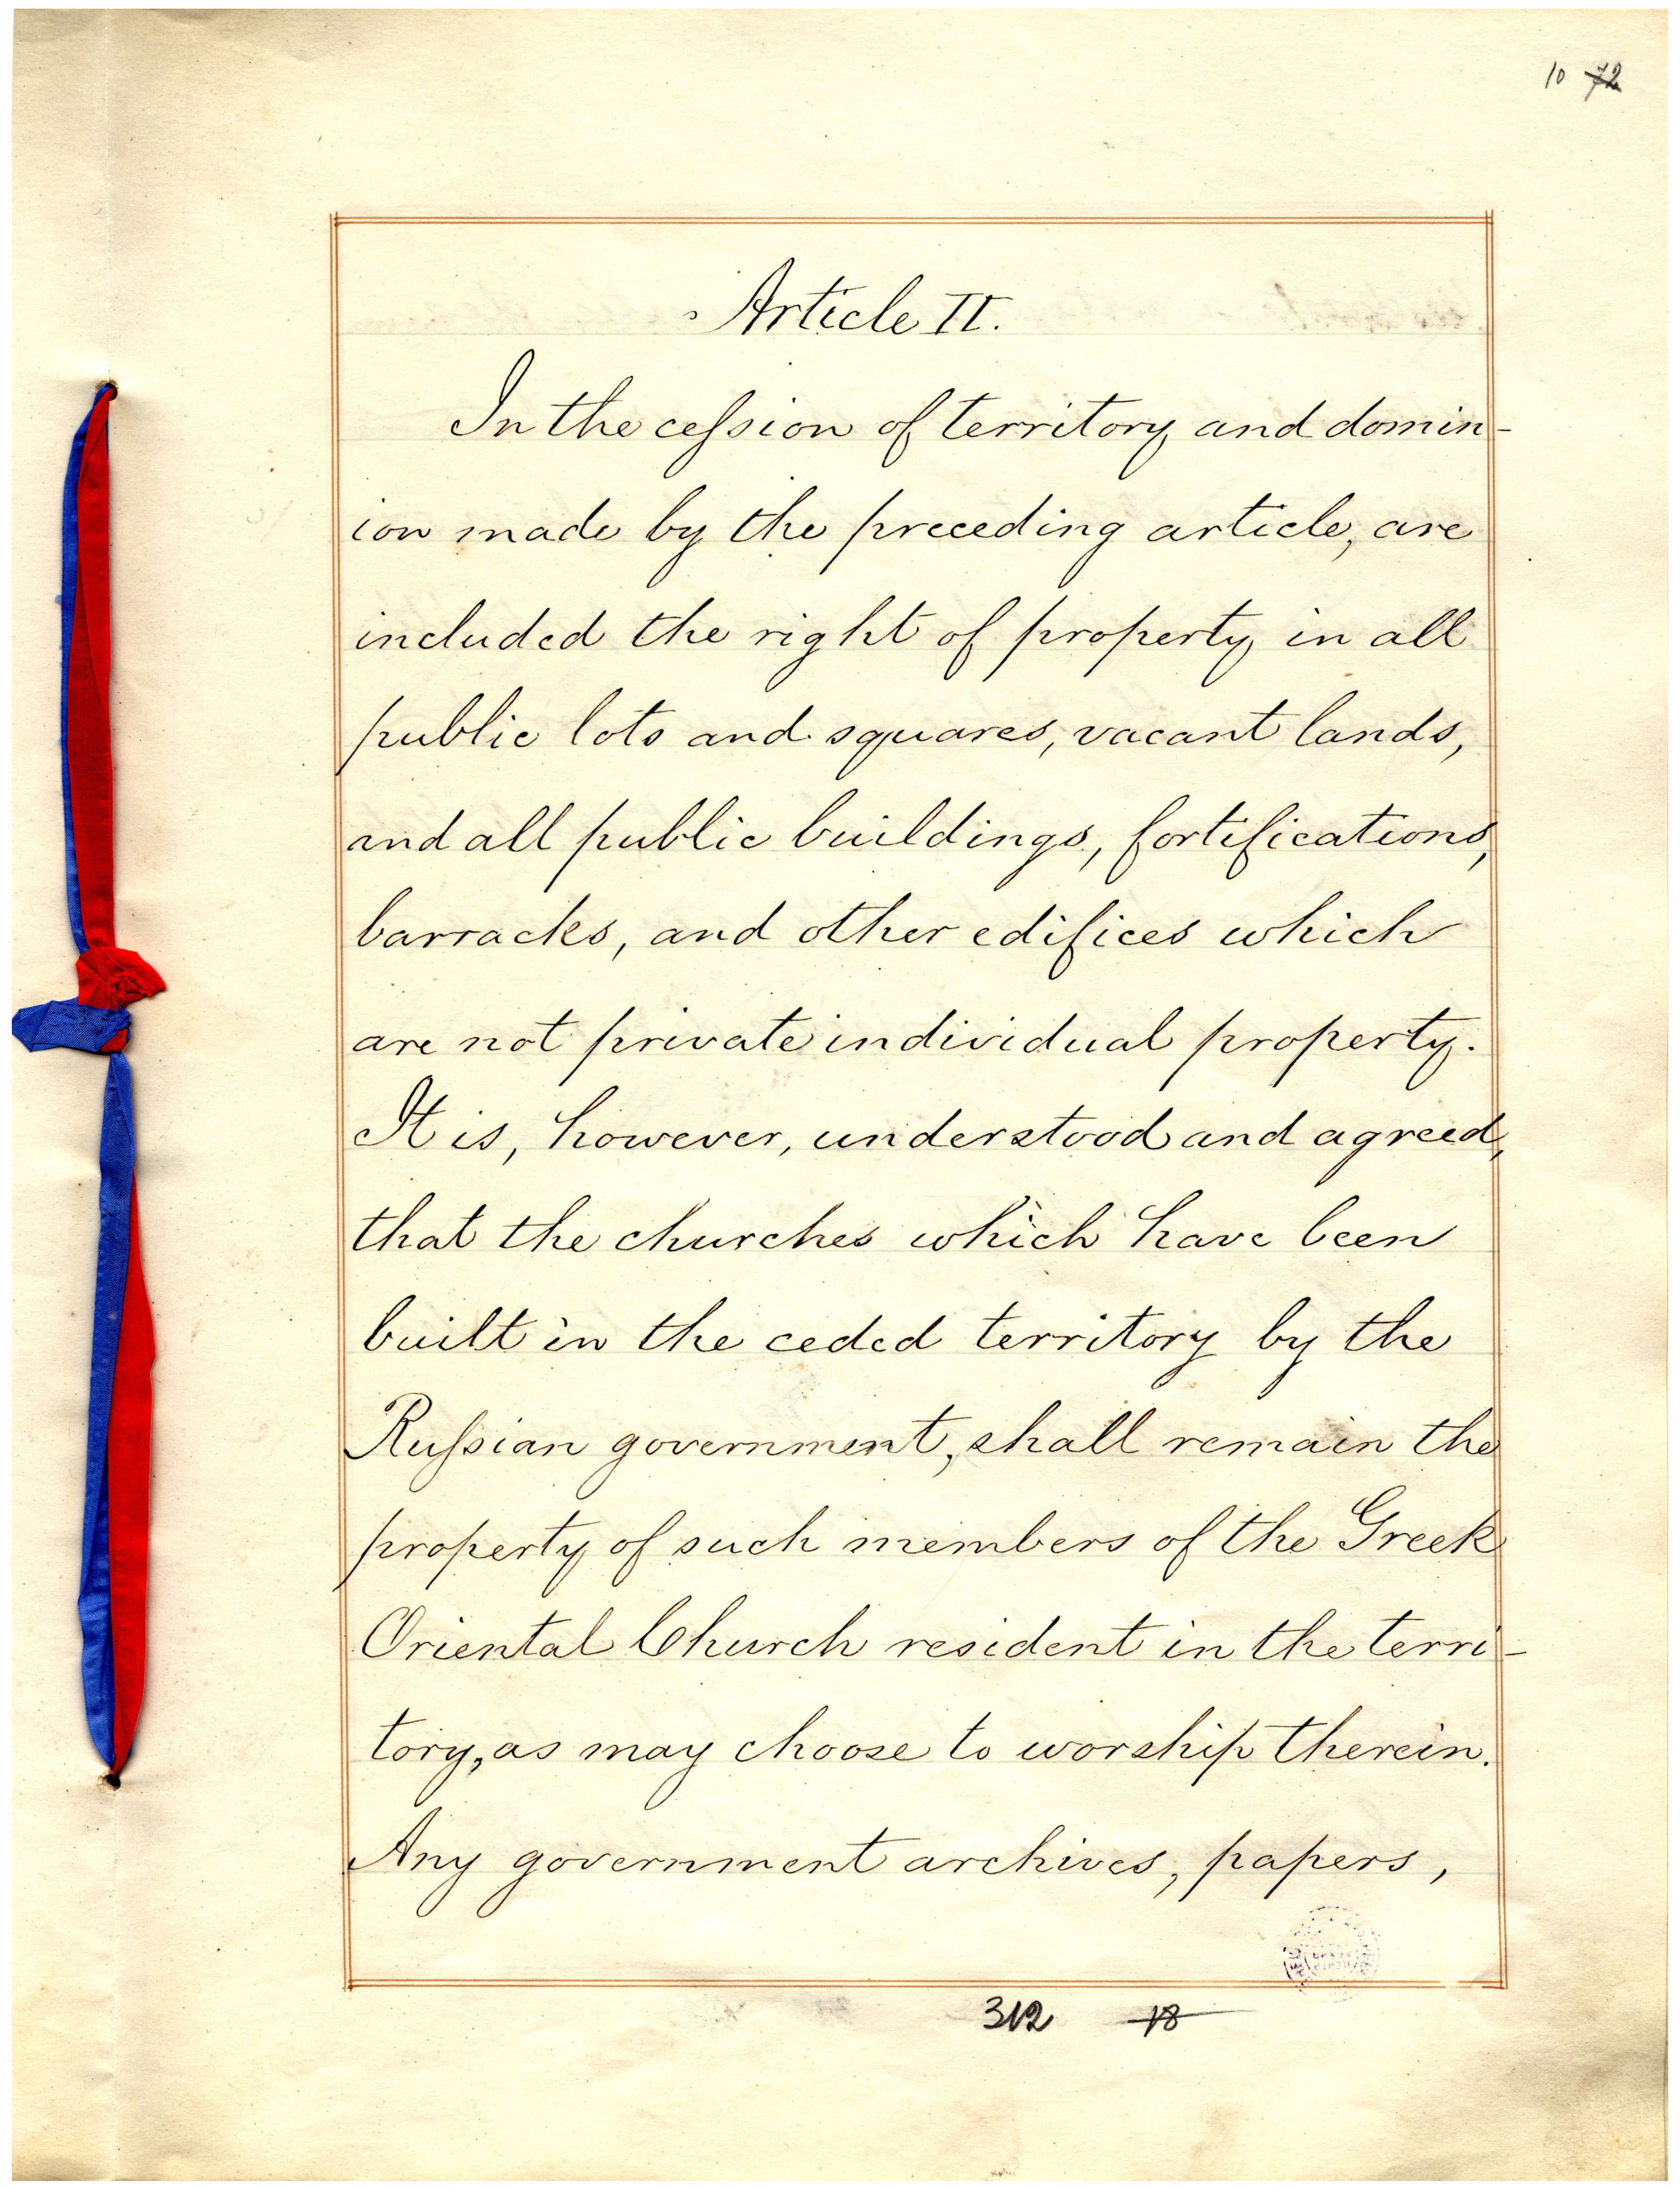 10 72
Article II.
In the cession of territory and domin-
ion made by the preceding article, are
included the right of property in all
public lots and squares, vacant lands,
and all public buildings, fortifications,
barracks, and other edifices which
are not private individual property.
It is, however, understood and agreed,
that the churches which have been
built in the ceded territory by the
Russian government, shall remain the
property of such members of the Greek
Oriental Church resident in the terri-
tory, as may choose to worship therein.
Any government archives, papers,
312 18